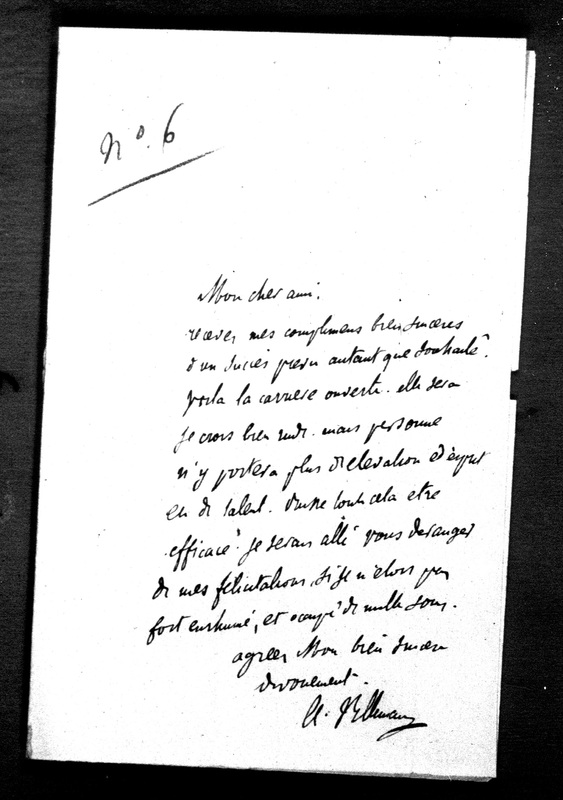 No. 6
Mon cher ami.
recevez mes complimens bien sinceres
d'un succès prevu autant que souhaité.
voila la carriere ouverte. elle sera
je crois bien rude. mais personne
n'y portera plus d'elevation d'esprit
et de talent. puisse tout cela etre
efficace! je serais allé vous deranger
de mes félicitations si je n'etois pas
fort enrhumé, et occupé de mille soins.
agréez Mon bien sincere
devouement.